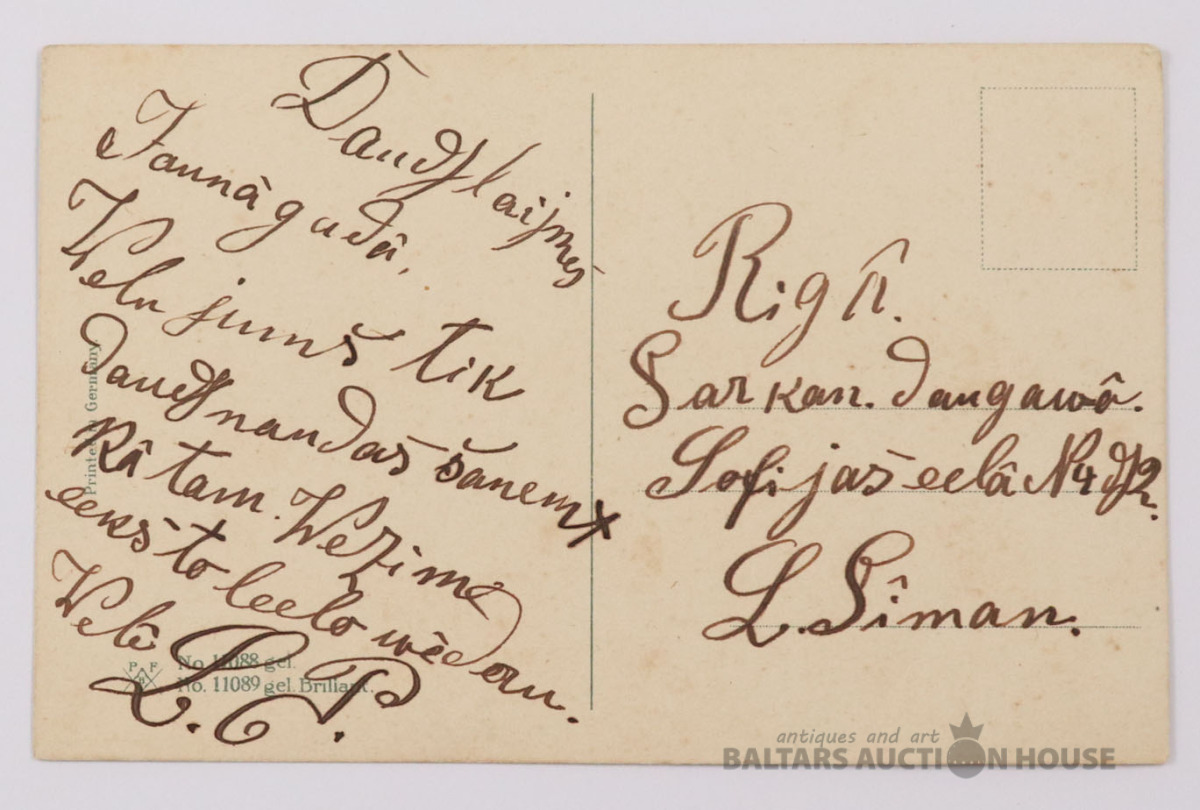 Daudſ laijmes
Jaunâ gadâ.
Velu jums tik
daudſ naudas šanemt
Kâ tam Wezime
eekš to leelo wēderu.
Velē
L. P.
Printed in Germany
P F B
No. 11088 gel.
No. 11089 gel. Brillant.
Rigâ.
Sarkan. daugawâ.
Sofijas eelâ N4 dſ 2.
L. Sîman.
antiques and art
BALTARS AUCTION HOUSE